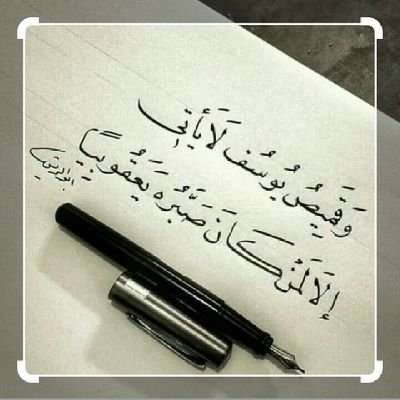 وَقَمِيصُ يُوسُف لَا يَأتِي
إلَا لَمِنْ كَانَ صَبْرُه يَعْقُوبِيًا